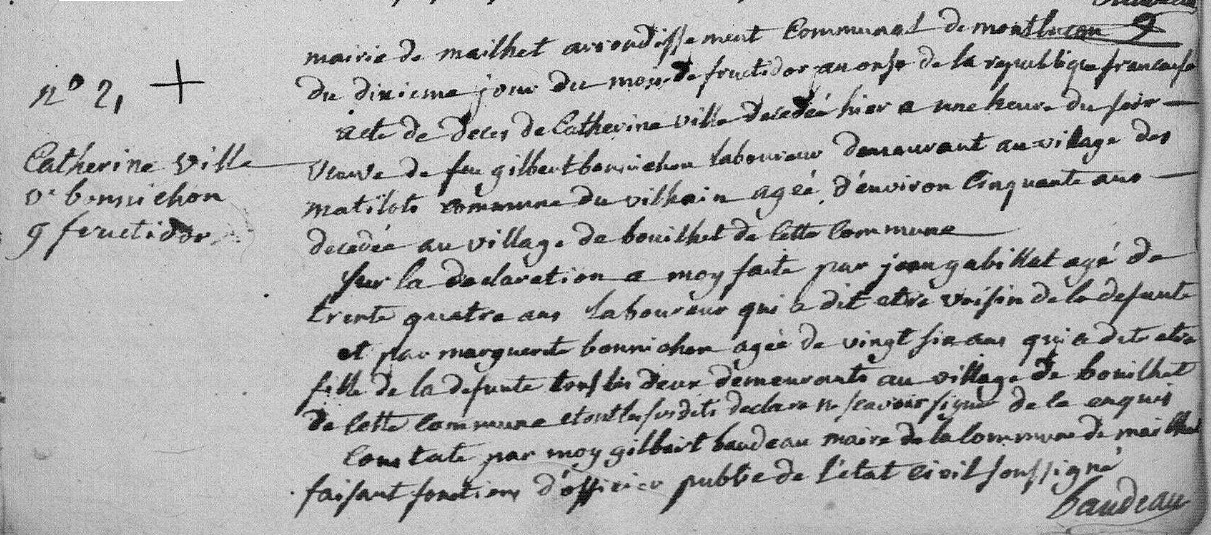 mairie de mailhet arrondissement Communal de montluçon
du dixieme jour du mois de fructidor an onse de la republique francaise
acte de deces de Catherine ville decedée hier a une heure du soir
veuve de feu gilbert bonnichon laboureur demeurant au village des
matilots commune du vilhain agée d'environ Cinquante ans
decedée au village de bouilhet de cette Commune
sur la declaration a moy faite par jean gabillat agé de
trente quatre ans laboureur qui a dit etre voisin de la defunte
et par marguerite bonnichon agée de vingt six ans qui a dit etre
fille de la defunte tous les deux demeurants au village de bouilhet
de cette commune et ont les susdits declare ne scavoir signer de ce enquis
Constaté par moy gilbert baudeau maire de la Commune de mailhet
faisant fonctions d'officier public de l'état civil soussigné
baudeau
n° 21
Catherine ville
ve bonnichon
9 fructidor